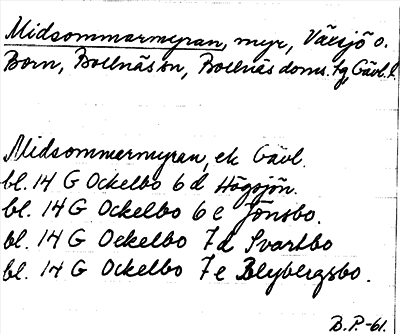 Midsommarmyran, myr, Växsjö o.
Born, Bollnäs sn, Bollnäs doms. tg, Gävl. l.
Midsommermyran, ek Gävl.
bl. 14 G Ockelbo 6 d Högsjön.
bl. 14 G Ockelbo 6 e Jönsbo.
bl. 14 G Ockelbo 7 d Svartbo
bl. 14 G Ockelbo 7 e Blybergsbo.
B.P.-61.